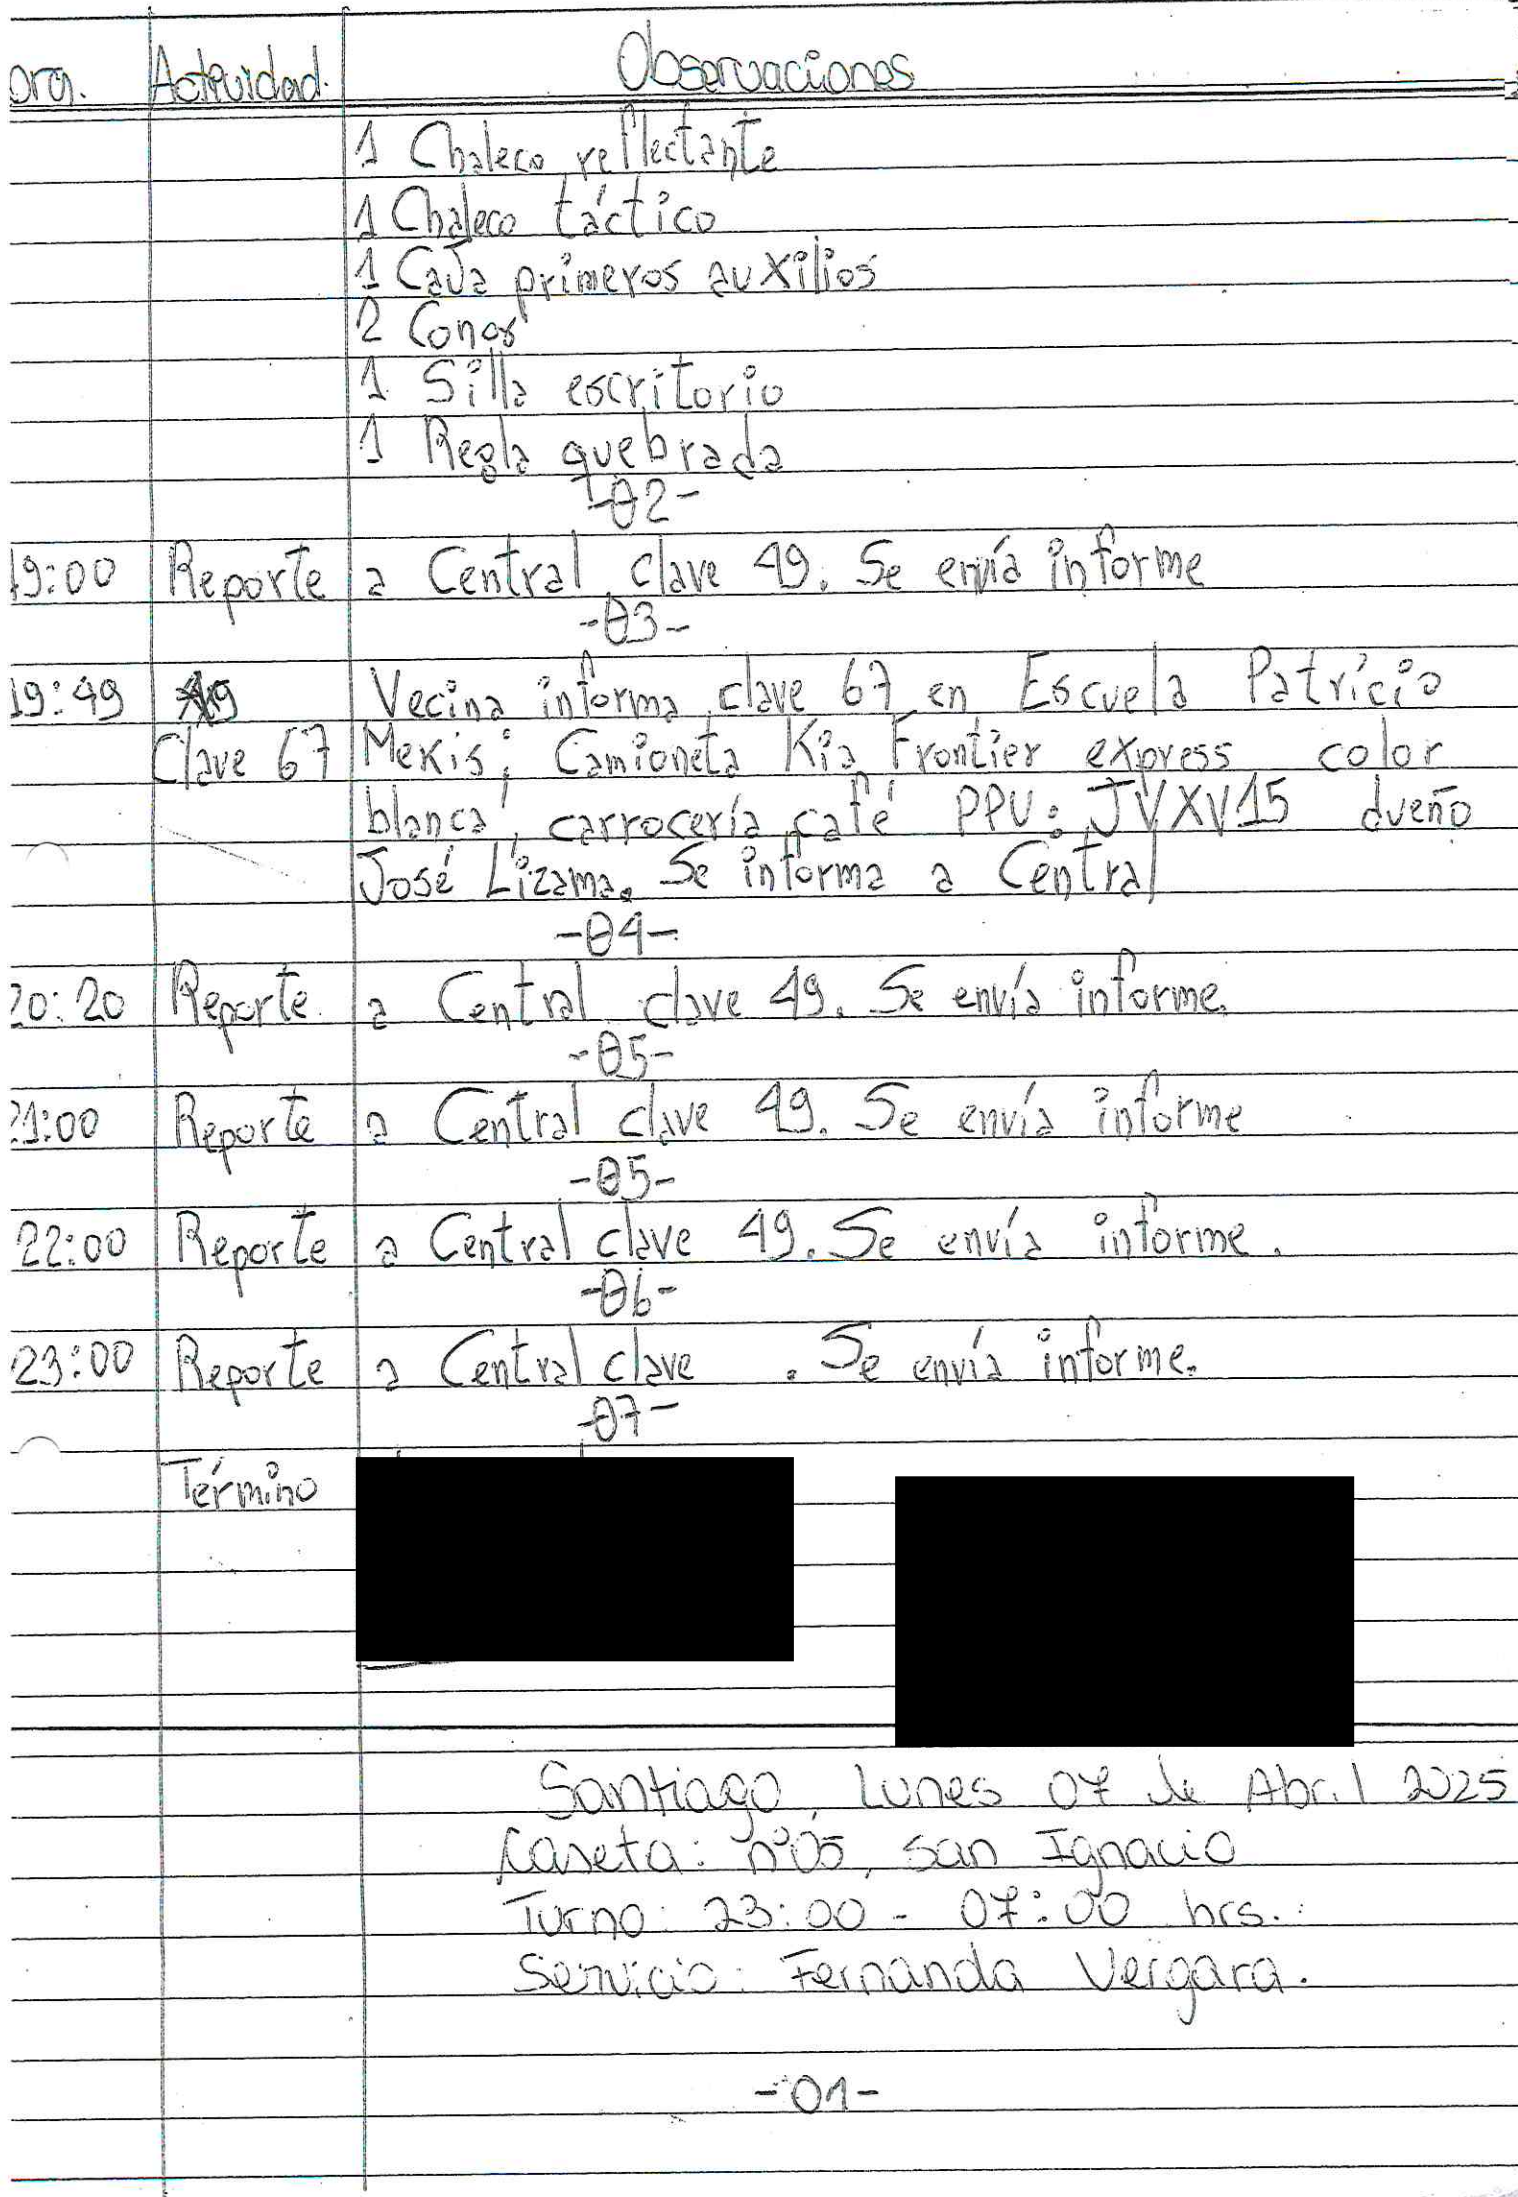 ora. Actividad. Observaciones
1 Chaleco reflectante
1 Chaleco táctico
1 Caja primeros auxilios
2 Conos
1 Silla escritorio
1 Regla quebrada
-02-
19:00 Reporte a Central clave 49. Se envía informe
-03-
19:49 Vecina informa clave 67 en Escuela Patricio
Clave 67 Mekis; Camioneta Kia Frontier express color
blanca, carrocería café PPU: JVXV15 dueño
José Lizama. Se informa a Central
-04-
20:20 Reporte a Central clave 49. Se envía informe.
-05-
21:00 Reporte a Central clave 49. Se envía informe
-05-
22:00 Reporte a Central clave 49. Se envía informe.
-06-
23:00 Reporte a Central clave . Se envía informe.
-07-
Término
Santiago, Lunes 07 de Abril 2025
Caseta: n°05, San Ignacio
Turno: 23:00 - 07:00 hrs.
Servicio: Fernanda Vergara.
-01-